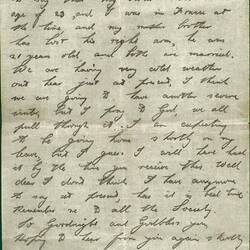 age of 23, and I was in France at
the time, and my mother brother
has lost his right arm, he was
21 years old, and both are married.
We are having very cold weather
out here just at present, I think
we are going to have another severe
winter, but I pray to God, we all
pull through it. I am expecting
to be going home shortly on my
leave, but I guess I will have had
it by the time you receive this. Well
dear I don't think I have anymore
to say at present, has
Remember me to all the Society
So Goodnight and God bless you
Hoping to hear from you again shortly